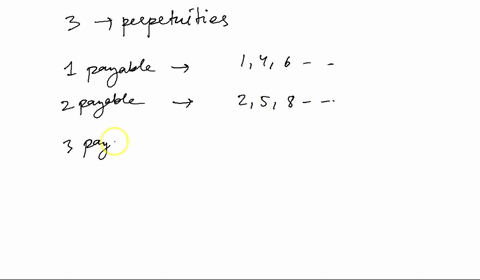 3 → perpetuities
1 payable → 1, 4, 6 - -
2 payable → 2, 5, 8 - - .
3 pay.